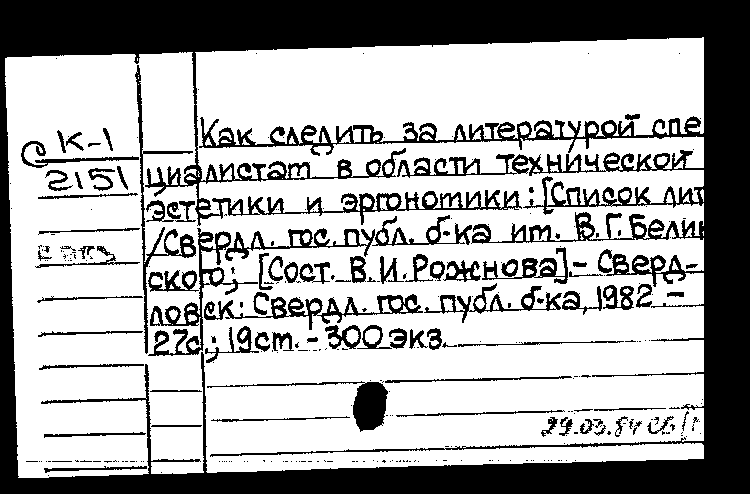 С К-1
2151
Как следить за литературой спе
циалистат в области технической
эстетики и эргонотики: [Список лит
/Свердл. гос. публ. б-ка ит. В.Г. Белин
ского; [Сост. В.И. Рожнова].- Сверд-
ловск: Свердл. гос. публ. б-ка, 1982.-
27с.; 19ст. - 300 экз.
29.03.84 СБ